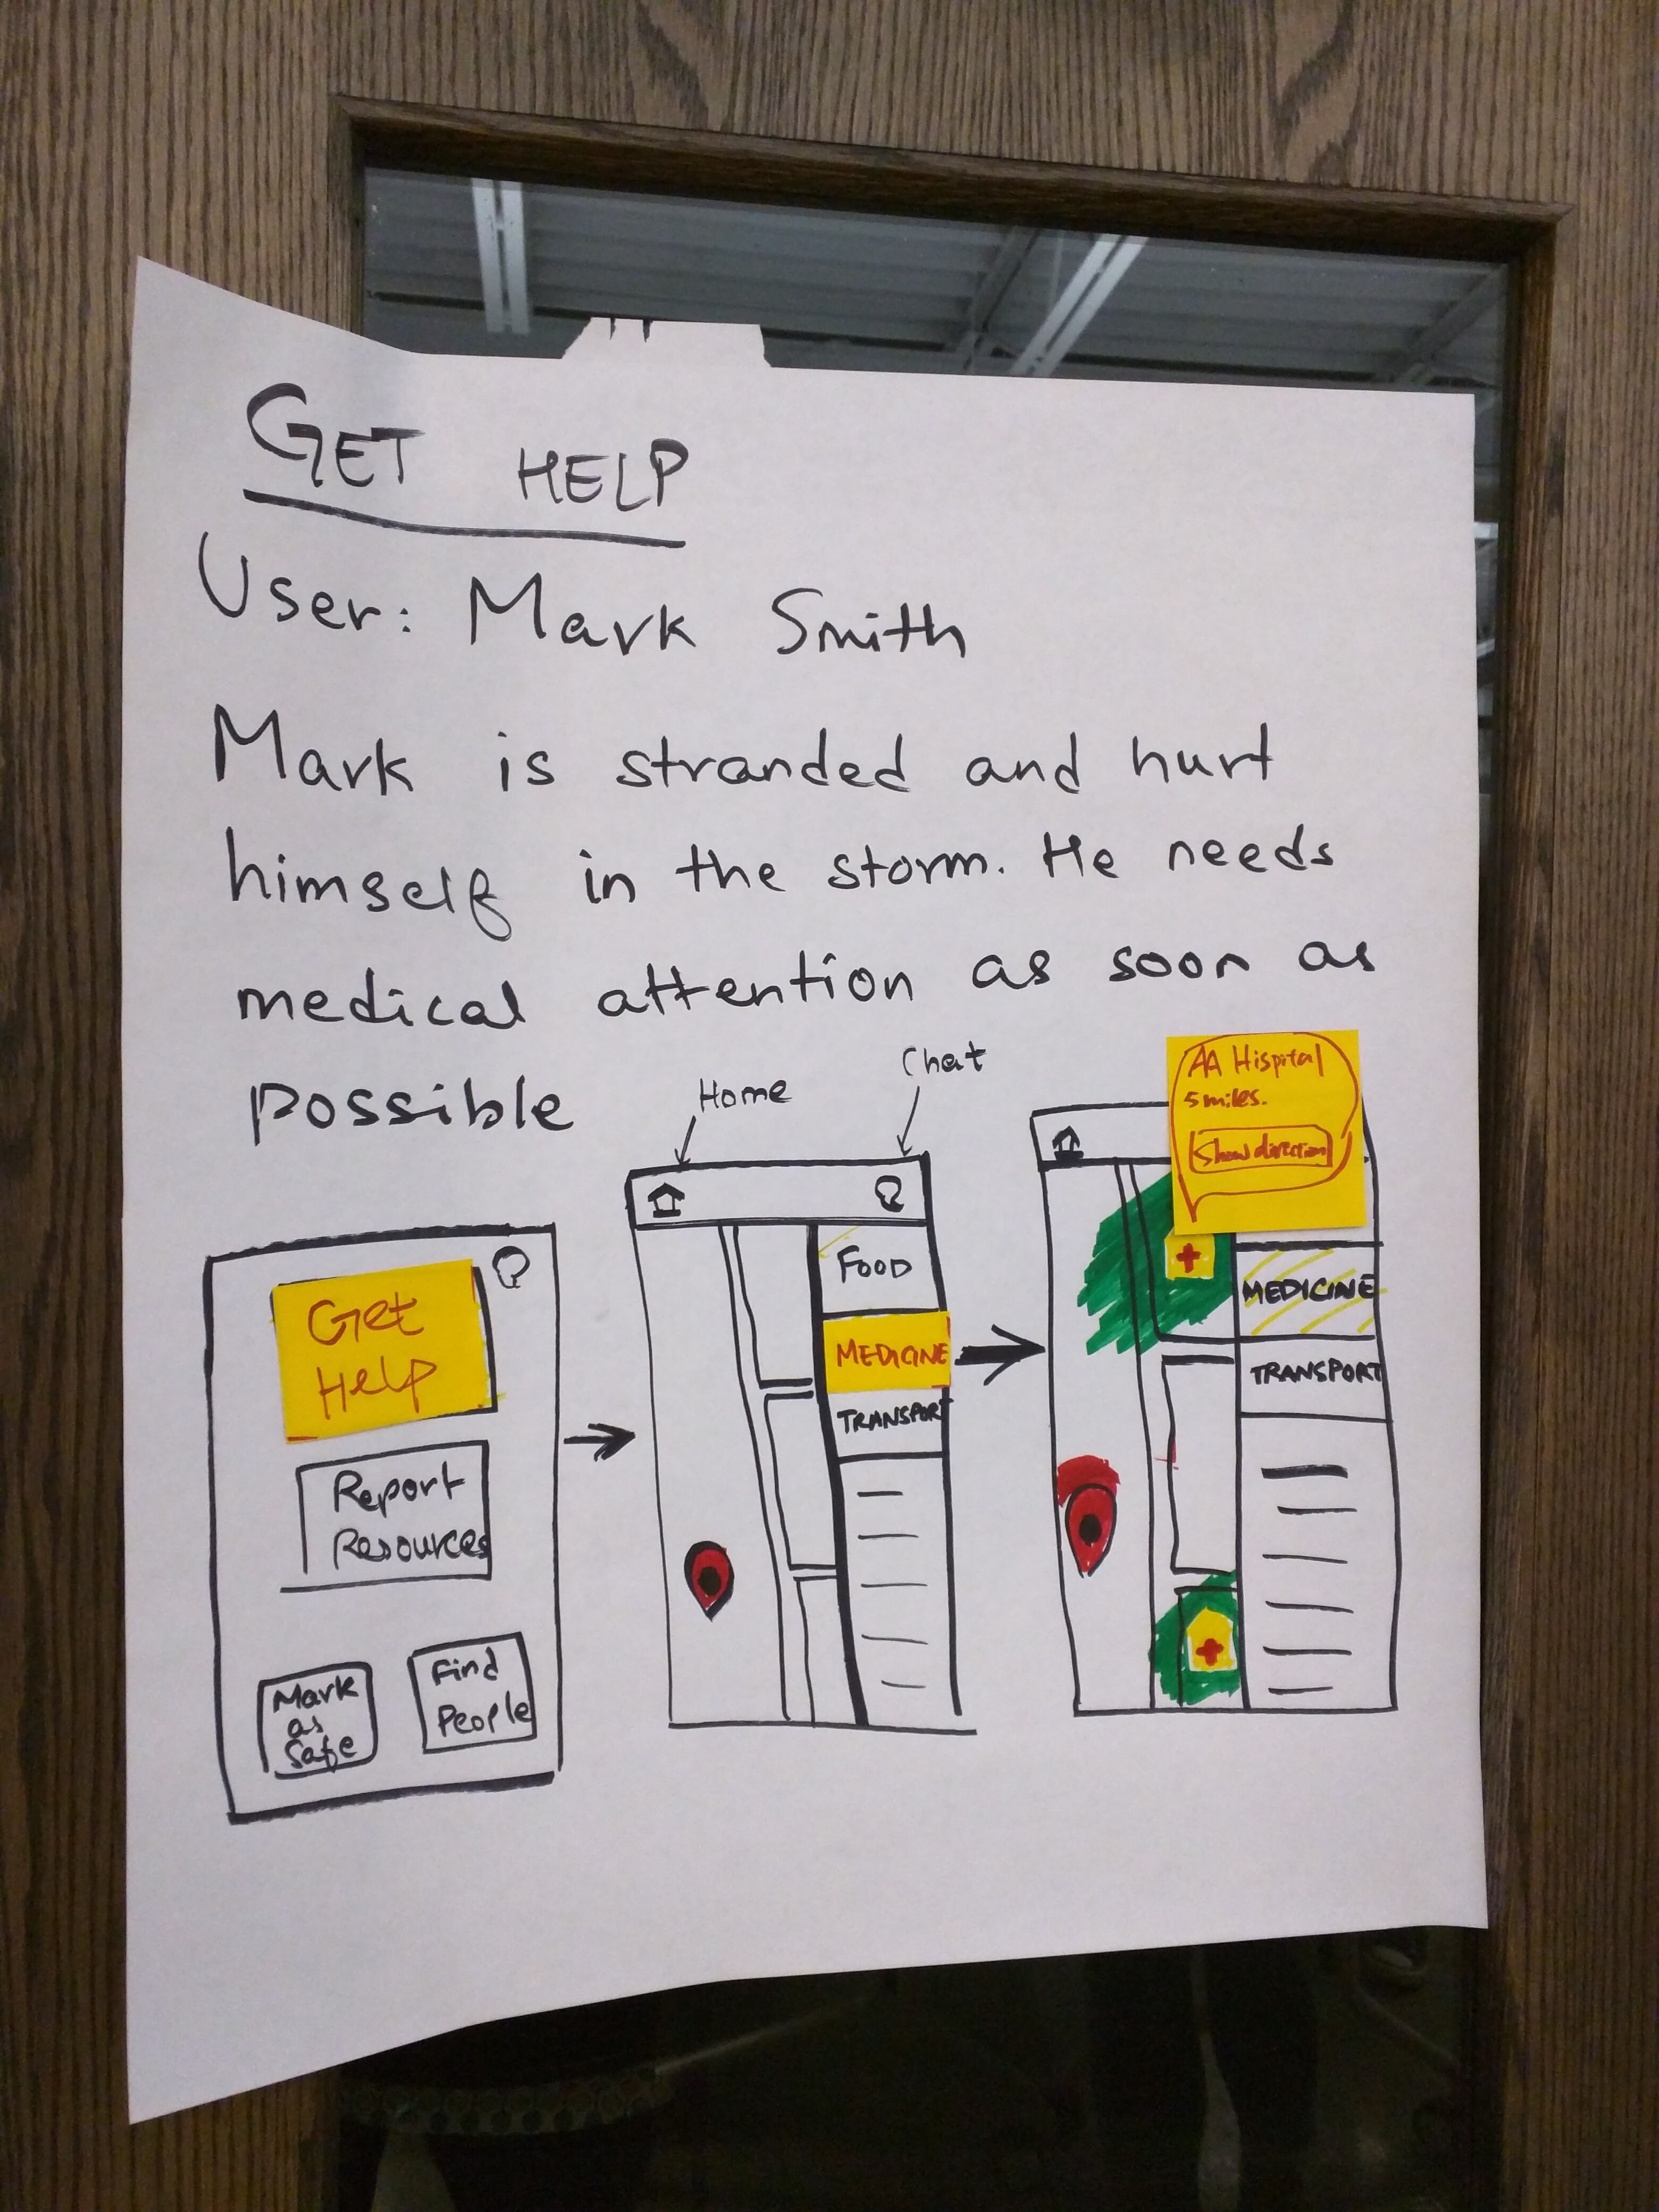 GET HELP
User: Mark Smith
Mark is stranded and hurt
himself in the storm. He needs
medical attention as soon as
possible
Home
Chat
Get
Help
Report
Resources
Mark
as
Safe
Find
People
FOOD
MEDICINE
TRANSPORT
AA Hispital
5 miles.
Show direction
MEDICINE
TRANSPORT